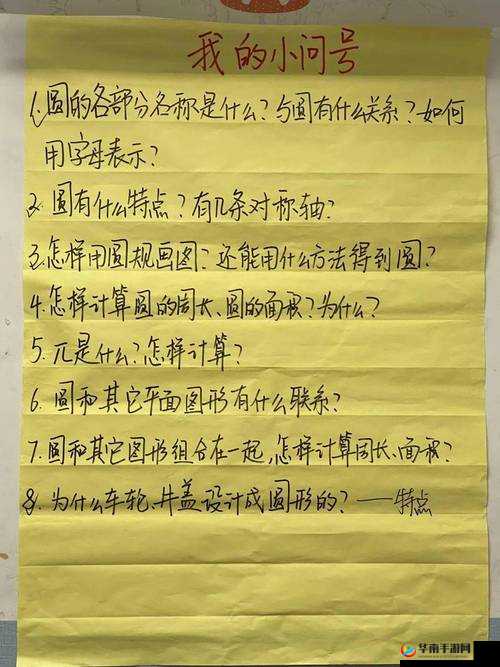 我的小问号
1.圆的各部分名称是什么？与圆有什么关系？如何
用字母表示？
2.圆有什么特点？有几条对称轴？
3.怎样用圆规画圆？还能用什么方法得到圆？
4.怎样计算圆的周长、圆的面积？为什么？
5.π是什么？怎样计算？
6.圆和其它平面图形有什么联系？
7.圆和其它图形组合在一起，怎样计算周长、面积？
8.为什么车轮、井盖设计成圆形的？——特点
华南手游网